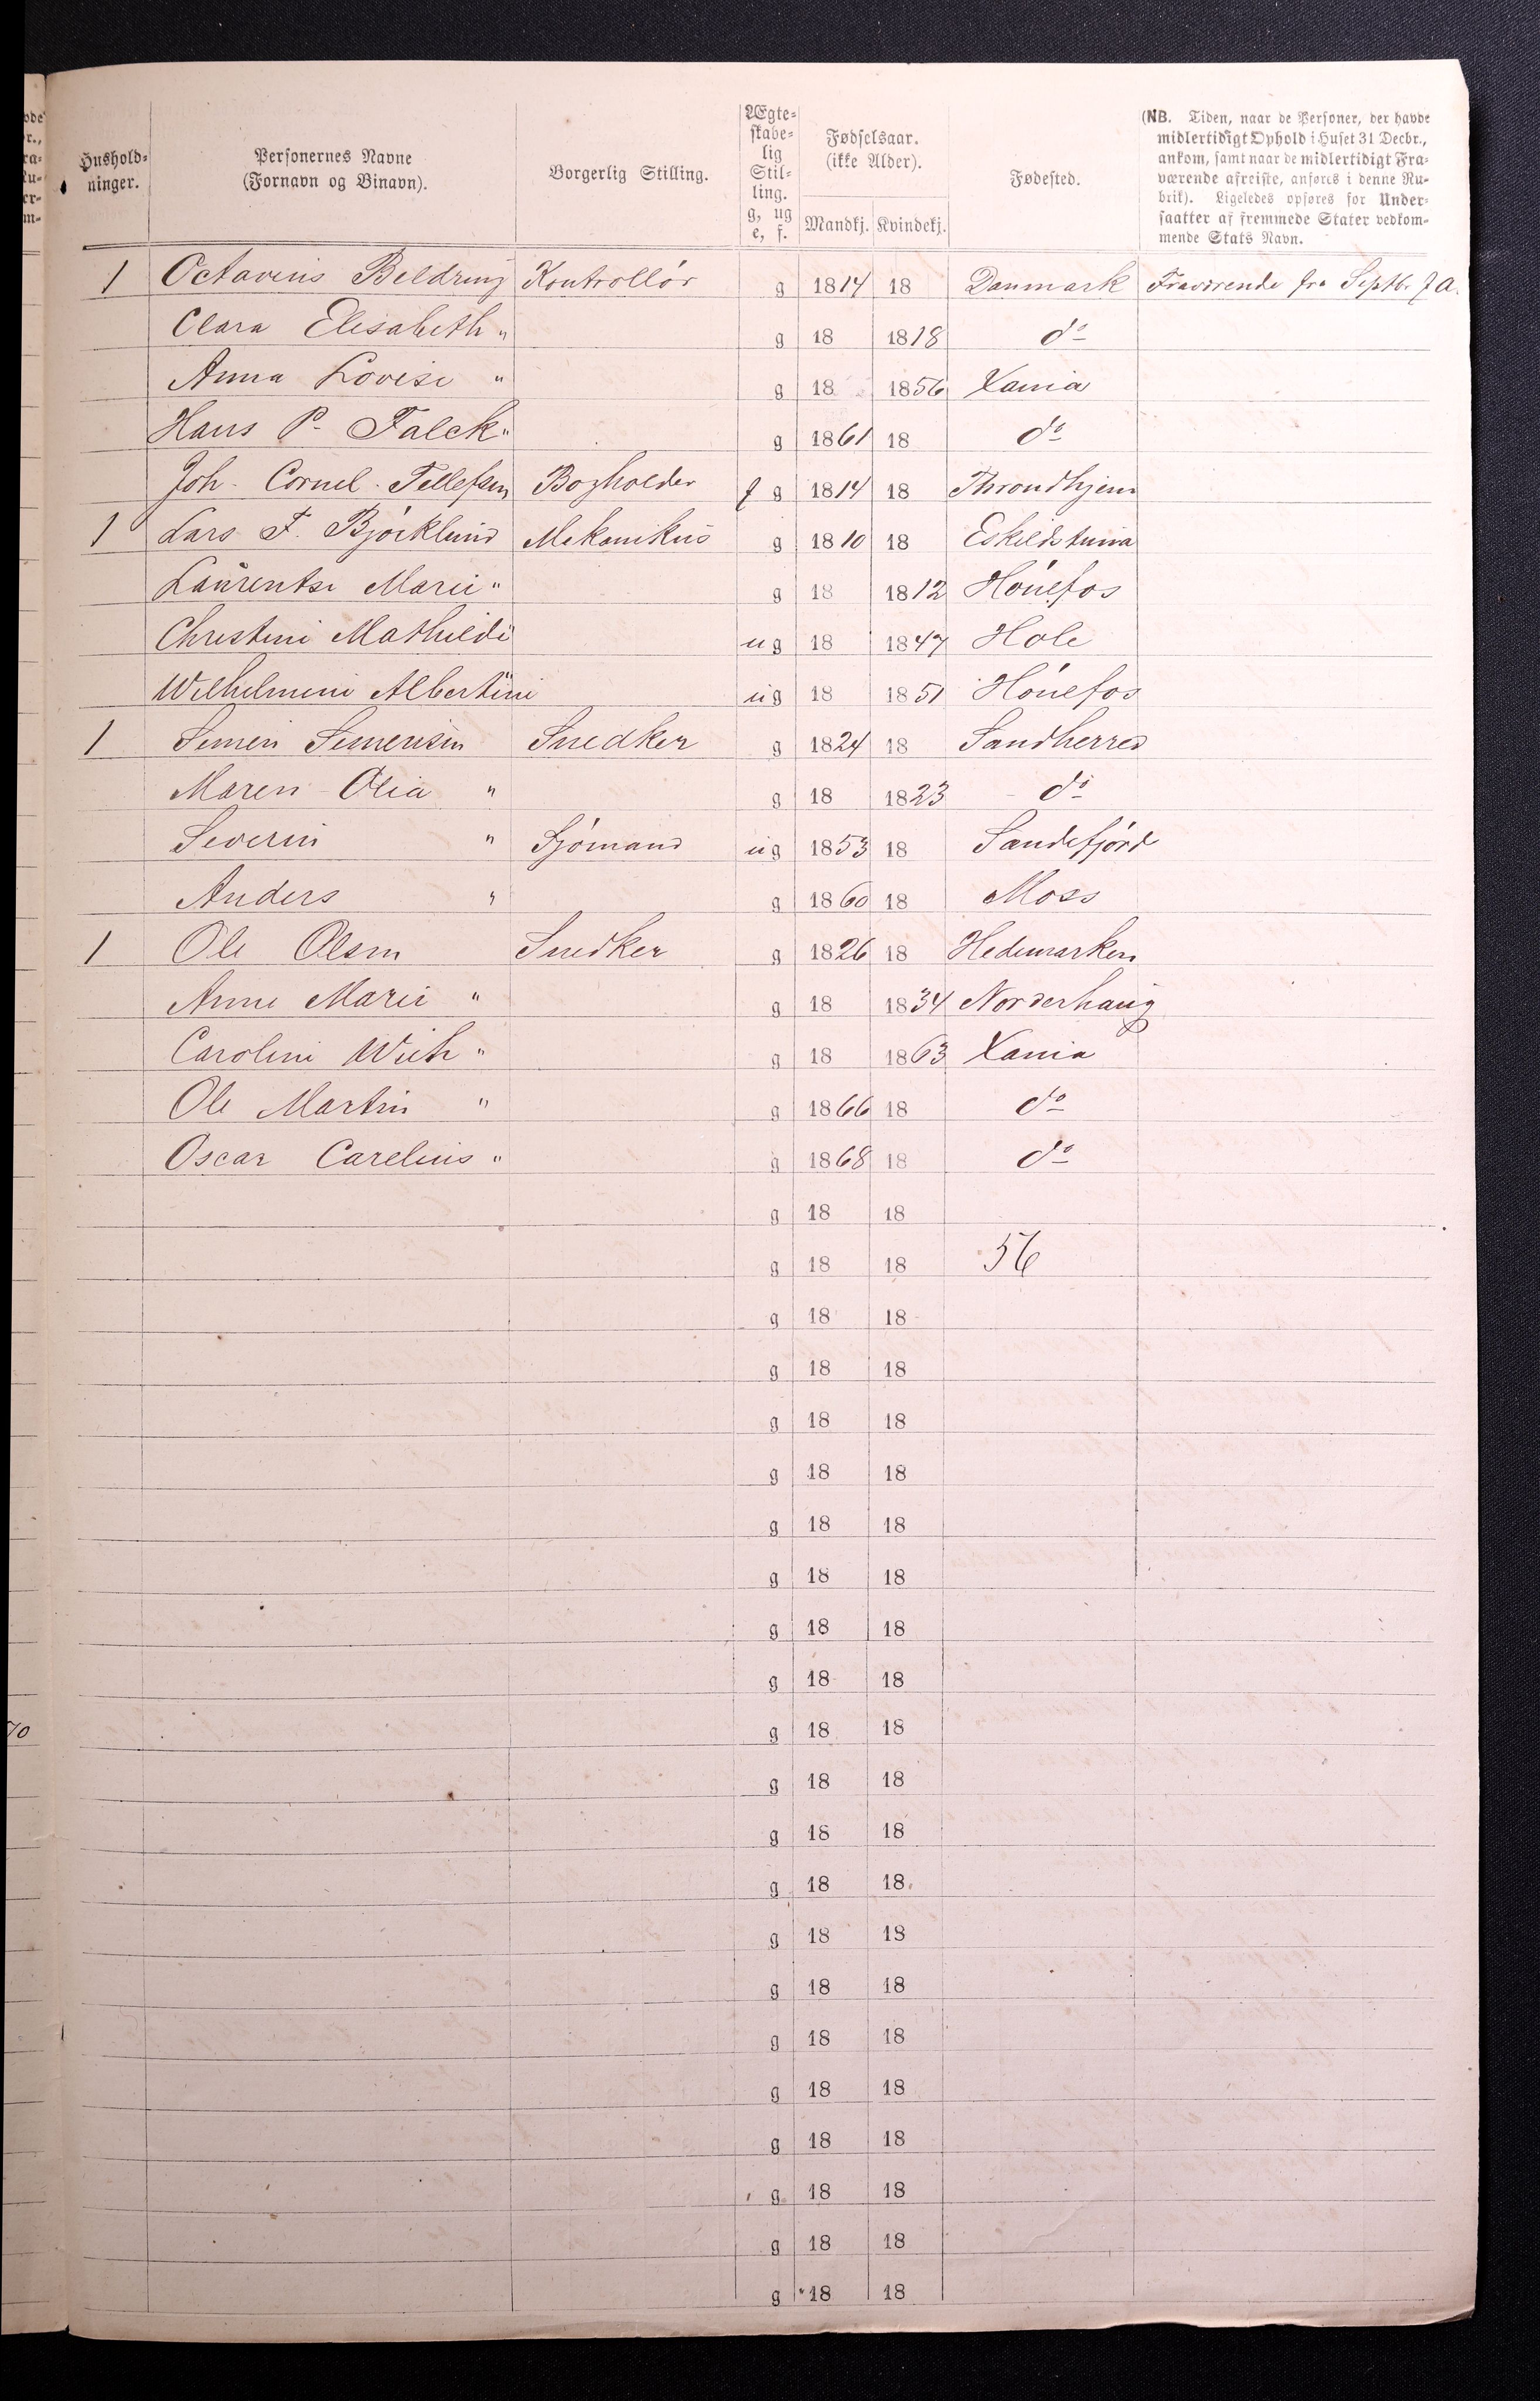 Hushold- ninger. | Personernes Navne (Fornavn og Binavn). | Borgerlig Stilling. | Ægte- skabe- lig Stil- ling. g, ug e, f. | Fødselsaar. (ikke Alder). Mandkj. Kvindekj. | Fødested. | (NB. Tiden, naar de Personer, der havde midlertidigt Ophold i Huset 31 Decbr., ankom, samt naar de midlertidigt Fra- værende afreiste, anføres i denne Ru- brik). Ligeledes opføres for Under- saatter af fremmede Stater vedkom- mende Stats Navn.
1 Octavius Beldring Kontrollör g 1814 18 Danmark Fraværende fra Septb. f A.
Clara Elisabeth " g 18 1818 do
Anna Lovise " g 18 1856 Xania
Hans P. Falck " g 1861 18 do
Joh. Cornel. Tellefsen Bogholder f g 1814 18 Throndhjem
1 Lars F. Björklund Mekanikus g 1810 18 Eskildstuna
Laurentse Marie " g 18 1812 Hönefos
Christine Mathilde ug 18 1847 Hole
Wilhelmine Albertine ug 18 1851 Hönefos
1 Simen Simensen Snedker g 1824 18 Sandherred
Maren Olia " g 18 1823 do
Severin " Sjömand ug 1853 18 Sandefjörd
Anders " g 1860 18 Moss
1 Ole Olsen Snedker g 1826 18 Hedemarken
Anne Marie " g 18 1834 Norderhaug
Caroline Wilh " g 18 1863 Xania
Ole Martin " g 1866 18 do
Oscar Carelius " g 1868 18 do
g 18 18
g 18 18 56
g 18 18
g 18 18
g 18 18
g 18 18
g 18 18
g 18 18
g 18 18
g 18 18
70 g 18 18
g 18 18
g 18 18
g 18 18
g 18 18
g 18 18
g 18 18
g 18 18
g 18 18
g 18 18
g 18 18
g 18 18